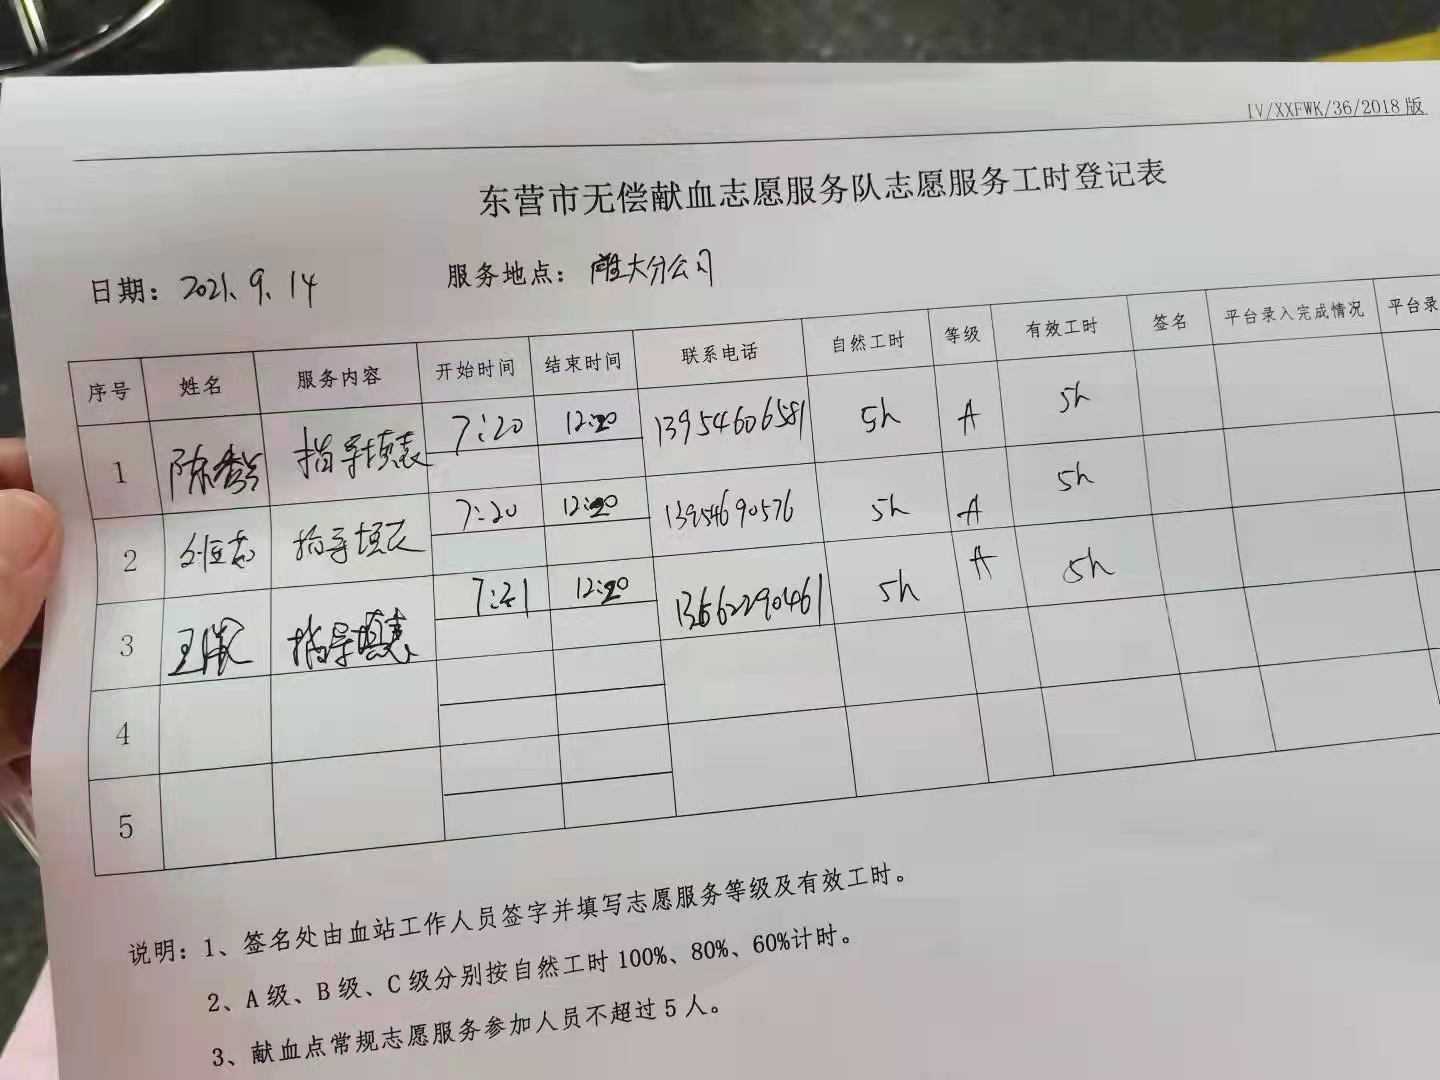 IV/XXFWK/36/2018 版
东营市无偿献血志愿服务队志愿服务工时登记表
日期: 2021.9.14 服务地点: 大分公司
序号 姓名 服务内容 开始时间 结束时间 联系电话 自然工时 等级 有效工时 签名 平台录入完成情况 平台录
1 陈 指导填表 7:20 12:20 13954606581 5h A 5h
2 指导填 7:20 12:20 13954690576 5h A 5h
3 王 指导填表 7:21 12:20 13562290461 5h A 5h
4
5
说明: 1、签名处由血站工作人员签字并填写志愿服务等级及有效工时。
2、A 级、B 级、C 级分别按自然工时 100%、80%、60%计时。
3、献血点常规志愿服务参加人员不超过 5 人。